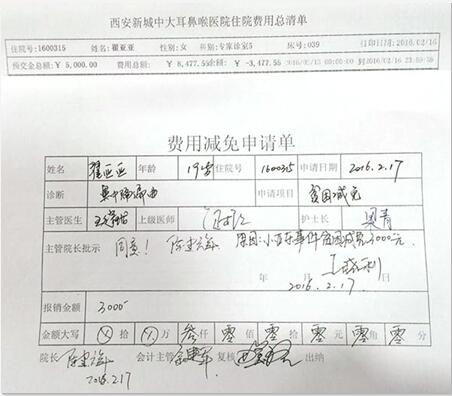 西安新城中大耳鼻喉医院住院费用总清单
住院号:1600315 姓名:翟亚亚 性别:女 科别:专家诊室5 床号:039 打印日期:2016/02/16
预交金总额:￥5,000.00 费用总额: ￥8,477.55 余额: ￥-3,477.55 2016/02/13 00:00:00 到2016/02/16 23:59:59
费用减免申请单
姓名 翟亚亚 年龄 19岁 住院号 1600315 申请日期 2016.2.17
诊断 鼻中隔偏曲 申请项目 贫困减免
主管医生 上级医师 护士长 吴青
主管院长批示 同意! 原因:小百乐事件贫困减免3000元.
年 月 日
2016.2.17.
报销金额 3000
金额大写 ⊗ 拾 ⊗ 万 叁 仟 零 佰 零 拾 零 元 零 角 零 分
院长 会计主管 复核 出纳
2016.2.17